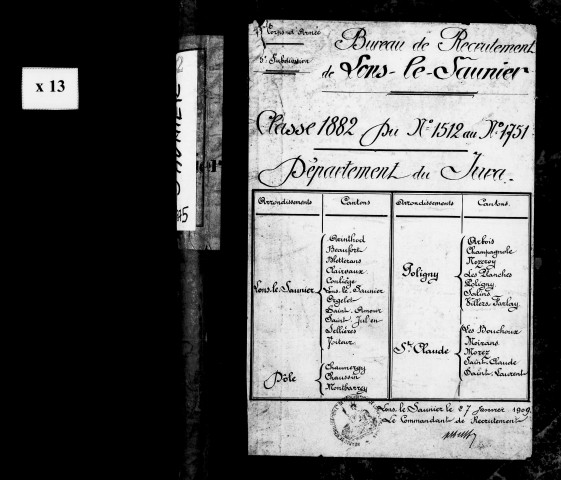 x 13
Corps d'Armée
5e Subdivision
Bureau de Recrutement
de Lons-le-Saunier
Classe 1882 Du N° 1512 au N° 1751
Département du Jura.
Arrondissements Cantons Arrondissements Cantons.
Lons-le-Saunier
Arinthod
Beaufort
Bletterans
Clairvaux
Conliège
Lons-le-Saunier
Orgelet
Saint-Amour
Saint-Julien
Sellières
Voiteur
Dôle
Chaumergy
Chaussin
Montbarrey
Poligny
Arbois
Champagnole
Nozeroy
Les Planches
Poligny
Salins
Villers-Farlay
St Claude
Les Bouchoux
Moirans
Morez
Saint-Claude
Saint-Laurent
Lons-le-Saunier le 27 Janvier 1909
Le Commandant de Recrutement